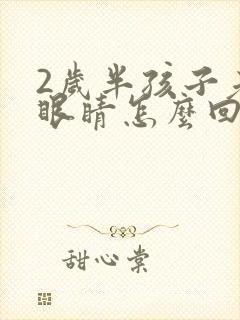 2歲半孩子
眼睛怎麼回
甜心棠